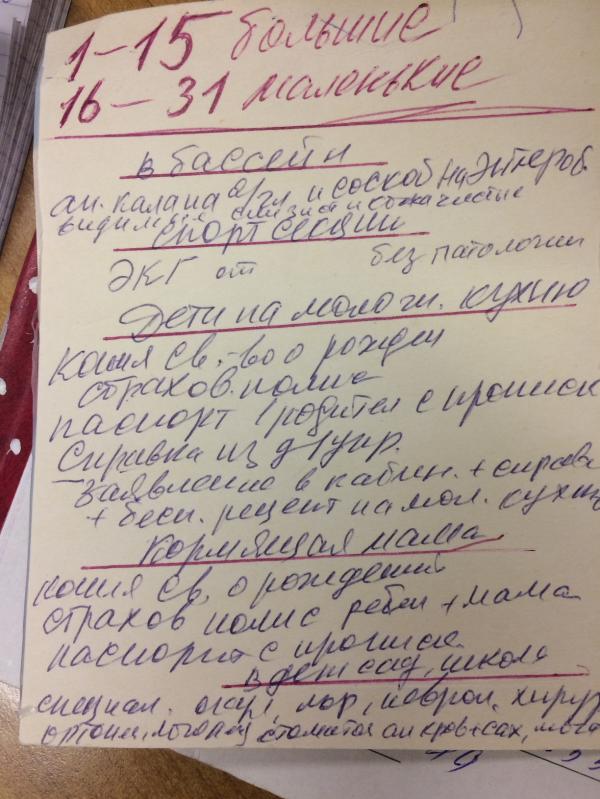 1-15 большие
16-31 маленькие
в бассейн
ан. кала на я/гл и соскоб на Энтероб.
видимые слизист и кожа чистые
спорт секции
ЭКГ от без патологии
Дети на молочн. кухню
копия св.-во о рожден
страхов. полис
паспорт 1 родител с прописк
Справка из
заявление в кабин. + справк
+ бесп. рецепт на мол. кухню
Кормящая мама
копия св. о рождений
страхов полис ребен + мама
паспорт с пропиской
в дет сад, школа
специал. окул, лор, невролог, хирург
ортопед, логопед стоматол ан кров + сах, моча